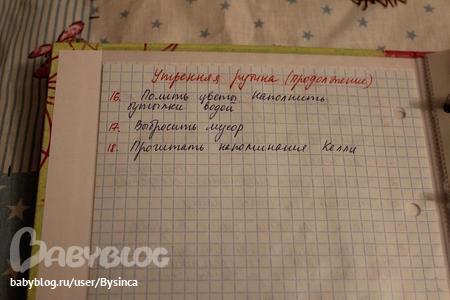 Утренняя рутина (продолжение)
16. Полить цветы Наполнить
бутылки водой
17. Выбросить мусор
18. Прочитать напоминания Келли
BABYBLOG
babyblog.ru/user/Bysinca